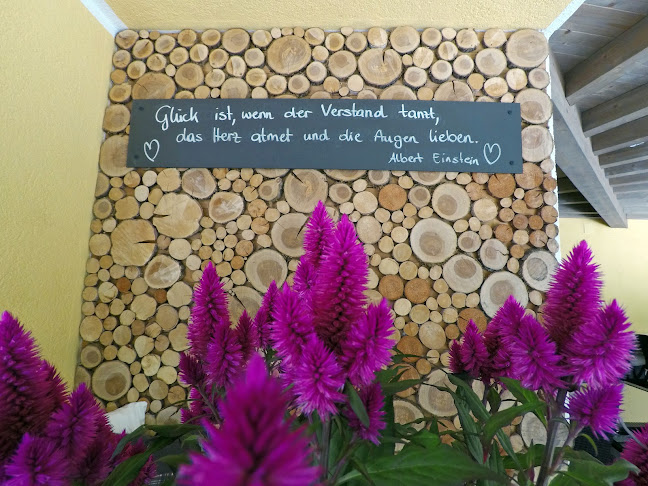 Glück ist, wenn der Verstand tanzt,
das Herz atmet und die Augen lieben.
Albert Einstein